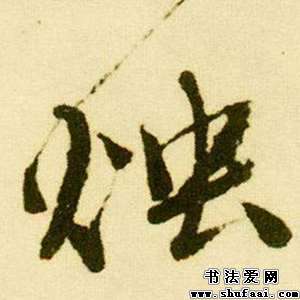 烛
书法爱网
www.shufaai.com